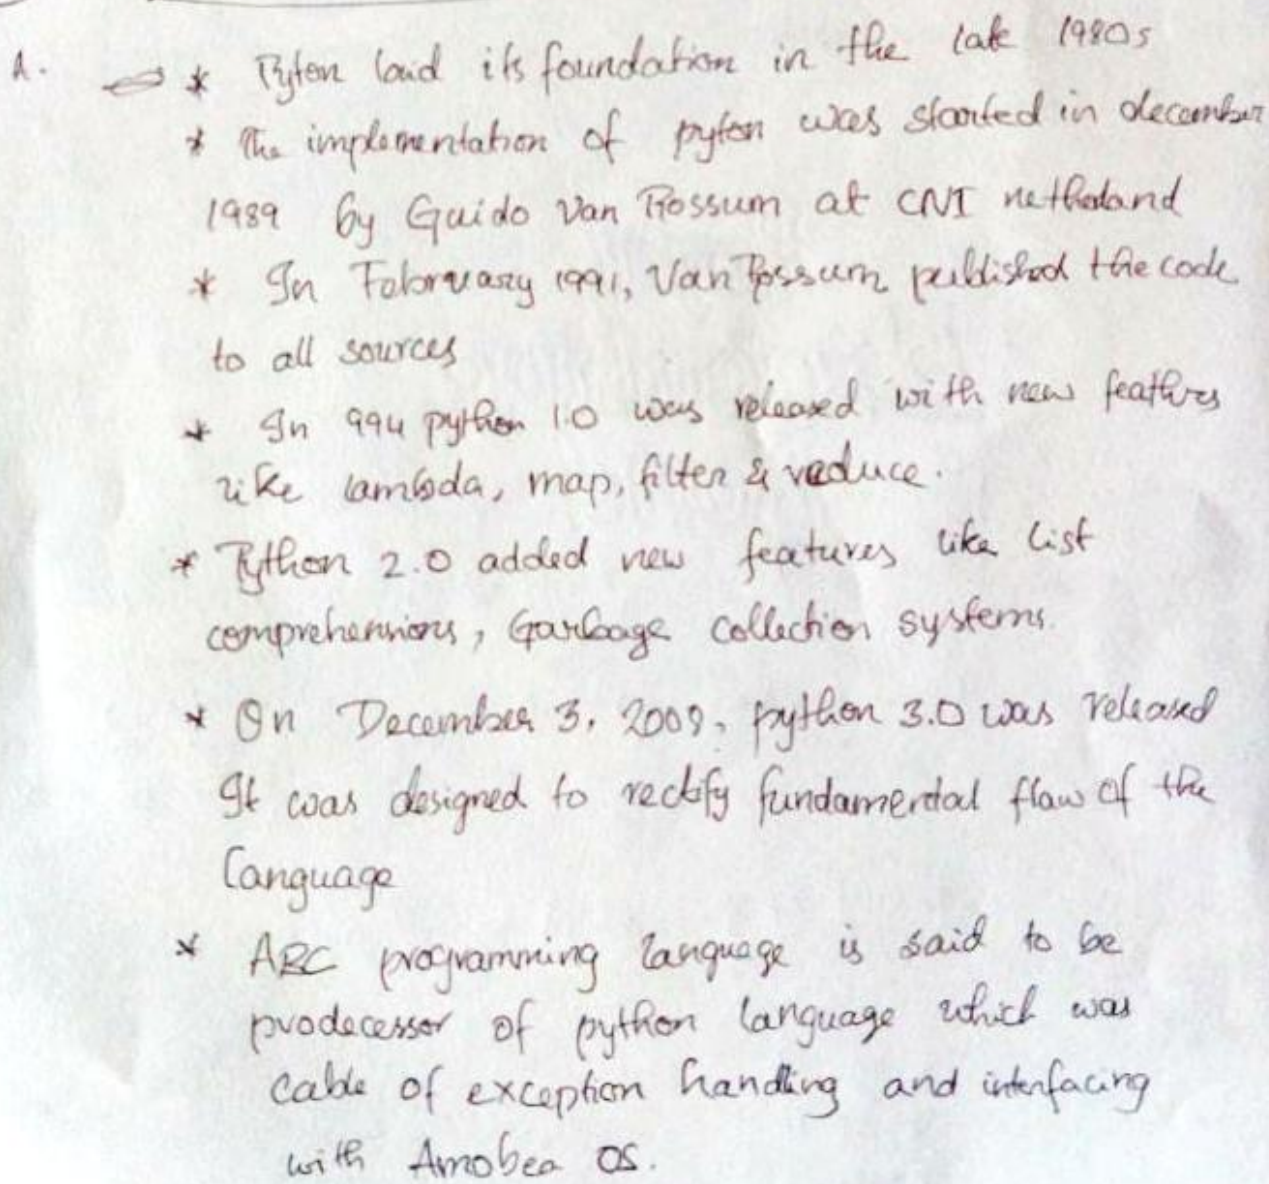 A. * Pyton laid its foundation in the late 1980s
* The implementation of pyton was started in december
1989 by Guido Van Rossum at CNI netherland
* In February 1991, Van Rossum published the code
to all sources
* In 994 python 1.0 was released with new feathres
like lambda, map, filter & reduce.
* Python 2.0 added new features like list
comprehensions, Garbage collection systems.
* On December 3, 2008, python 3.0 was released
It was designed to rectify fundamental flaw of the
Language
* ABC programming language is said to be
prodecessor of python language which was
cable of exception handling and interfacing
with Amobea OS.